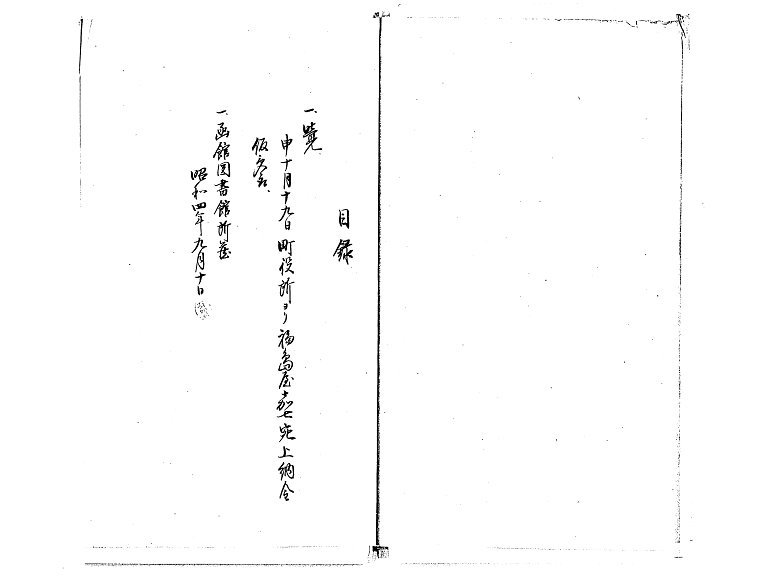 目録
一、覚
申十月十九日町役所ヨリ福島屋嘉七宛上納金
仮
一、函館図書館所蔵
昭和四年九月十日